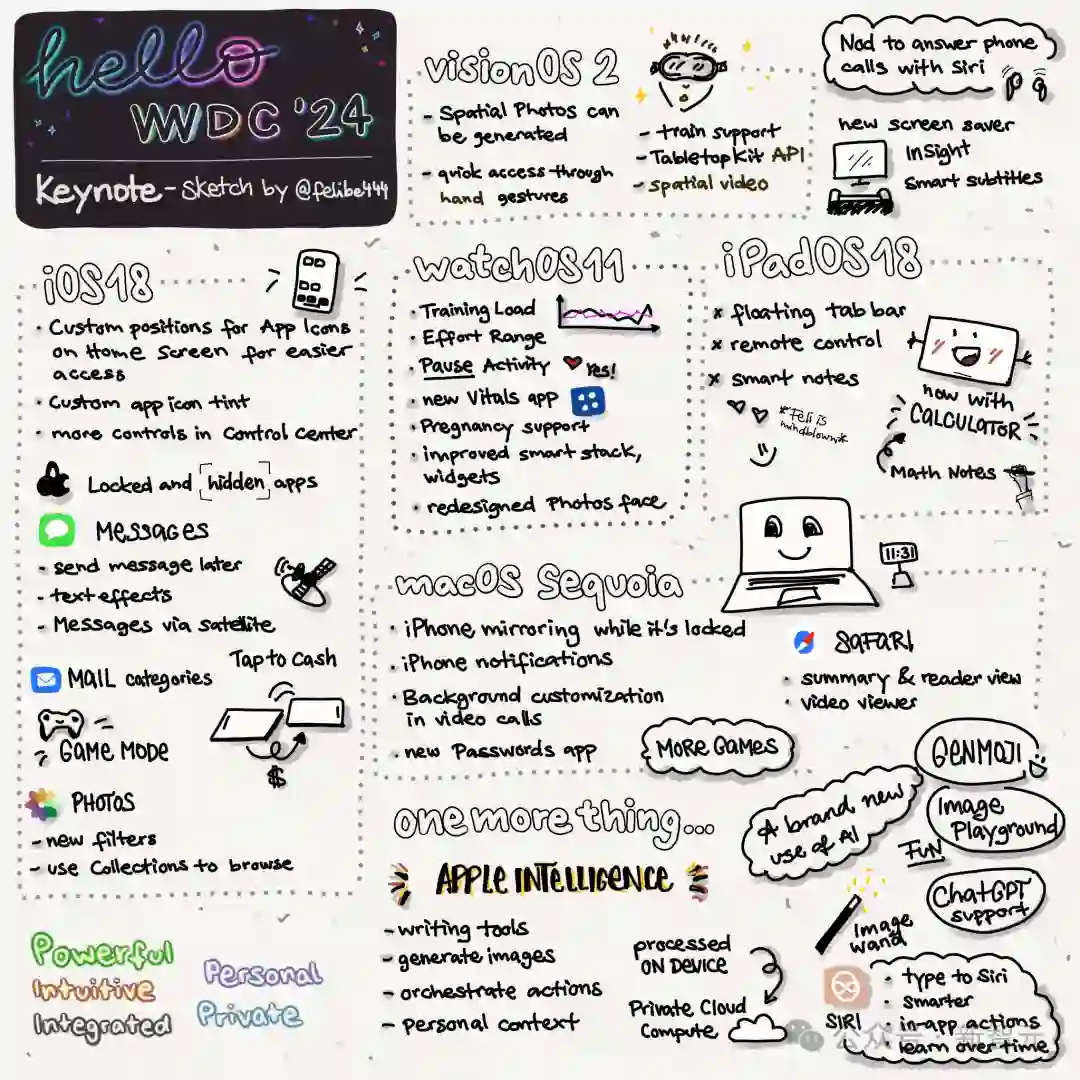 hello
WWDC '24
Keynote - Sketch by @felibe444
visionOS 2
- Spatial Photos can
be generated
- quick access through
hand gestures
- train support
- TabletopKit API
- spatial video
Nod to answer phone
calls with Siri
new screen saver
InSight
Smart subtitles
iOS18
• Custom positions for App Icons
on Home Screen for easier
access
• Custom app icon tint
• more controls in Control Center
Locked and hidden apps
MESSAGES
- send message later
- text effects
- Messages via satellite
MAIL categories
Tap to Cash
$
GAME MODE
PHOTOS
- new filters
- use Collections to browse
watchOS11
• Training Load
• Effort Range
• Pause Activity Yes!
• new Vitals app
• Pregnancy support
• improved smart stack,
widgets
• redesigned Photos face
iPadOS18
x floating tab bar
x remote control
x smart notes
*Feli is
mindblown*
now with
CALCULATOR
Math Notes
macOS Sequoia
11:31
• iPhone mirroring while it's locked
• iPhone notifications
• Background customization
in video calls
• new Passwords app
SAFARI
• summary & reader view
• video viewer
MORE GAMES
one more thing...
APPLE INTELLIGENCE
- writing tools
- generate images
- orchestrate actions
- personal context
processed
ON DEVICE
Private Cloud
Compute
A brand new
use of AI
GENMOJI
Image
Playground
FUN
ChatGPT
support
Image
wand
SIRI
• type to Siri
• smarter
• in-app actions
• learn over time
Powerful
Intuitive
Integrated
Personal
Private
公众号·新智元